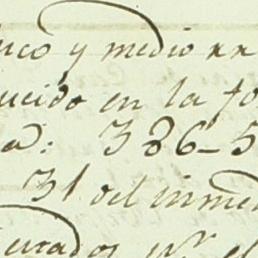 nco y medio rr
ucido en la fo
a: 386-5
31 del inme
curados pr el